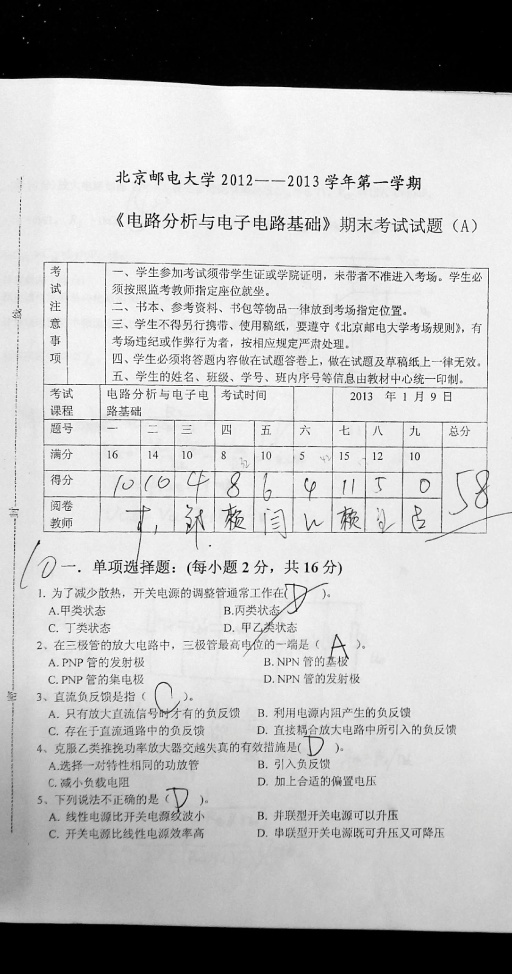 北京邮电大学 2012——2013 学年第一学期
《电路分析与电子电路基础》期末考试试题（A）
考试注意事项
一、学生参加考试须带学生证或学院证明，未带者不准进入考场。学生必须按照监考教师指定座位就坐。
二、书本、参考资料、书包等物品一律放到考场指定位置。
三、学生不得另行携带、使用稿纸，要遵守《北京邮电大学考场规则》，有考场违纪或作弊行为者，按相应规定严肃处理。
四、学生必须将答题内容做在试题答卷上，做在试题及草稿纸上一律无效。
五、学生的姓名、班级、学号、班内序号等信息由教材中心统一印制。
考试课程 电路分析与电子电路基础 考试时间 2013 年 1 月 9 日
题号 一 二 三 四 五 六 七 八 九 总分
满分 16 14 10 8 10 5 15 12 10
得分 10 10 4 8 6 4 11 5 0 58
阅卷教师 赖 闫 赖
10 一．单项选择题：(每小题 2 分，共 16 分)
1. 为了减少散热，开关电源的调整管通常工作在( D )。
A.甲类状态 B.丙类状态
C. 丁类状态 D. 甲乙类状态
2、在三极管的放大电路中，三极管最高电位的一端是（ A ）。
A. PNP 管的发射极 B. NPN 管的基极
C. PNP 管的集电极 D. NPN 管的发射极
3、直流负反馈是指（ C ）。
A. 只有放大直流信号时才有的负反馈 B. 利用电源内阻产生的负反馈
C. 存在于直流通路中的负反馈 D. 直接耦合放大电路中所引入的负反馈
4、克服乙类推挽功率放大器交越失真的有效措施是( D )。
A.选择一对特性相同的功放管 B. 引入负反馈
C. 减小负载电阻 D. 加上合适的偏置电压
5、下列说法不正确的是（ D ）。
A. 线性电源比开关电源纹波小 B. 并联型开关电源可以升压
C. 开关电源比线性电源效率高 D. 串联型开关电源既可升压又可降压